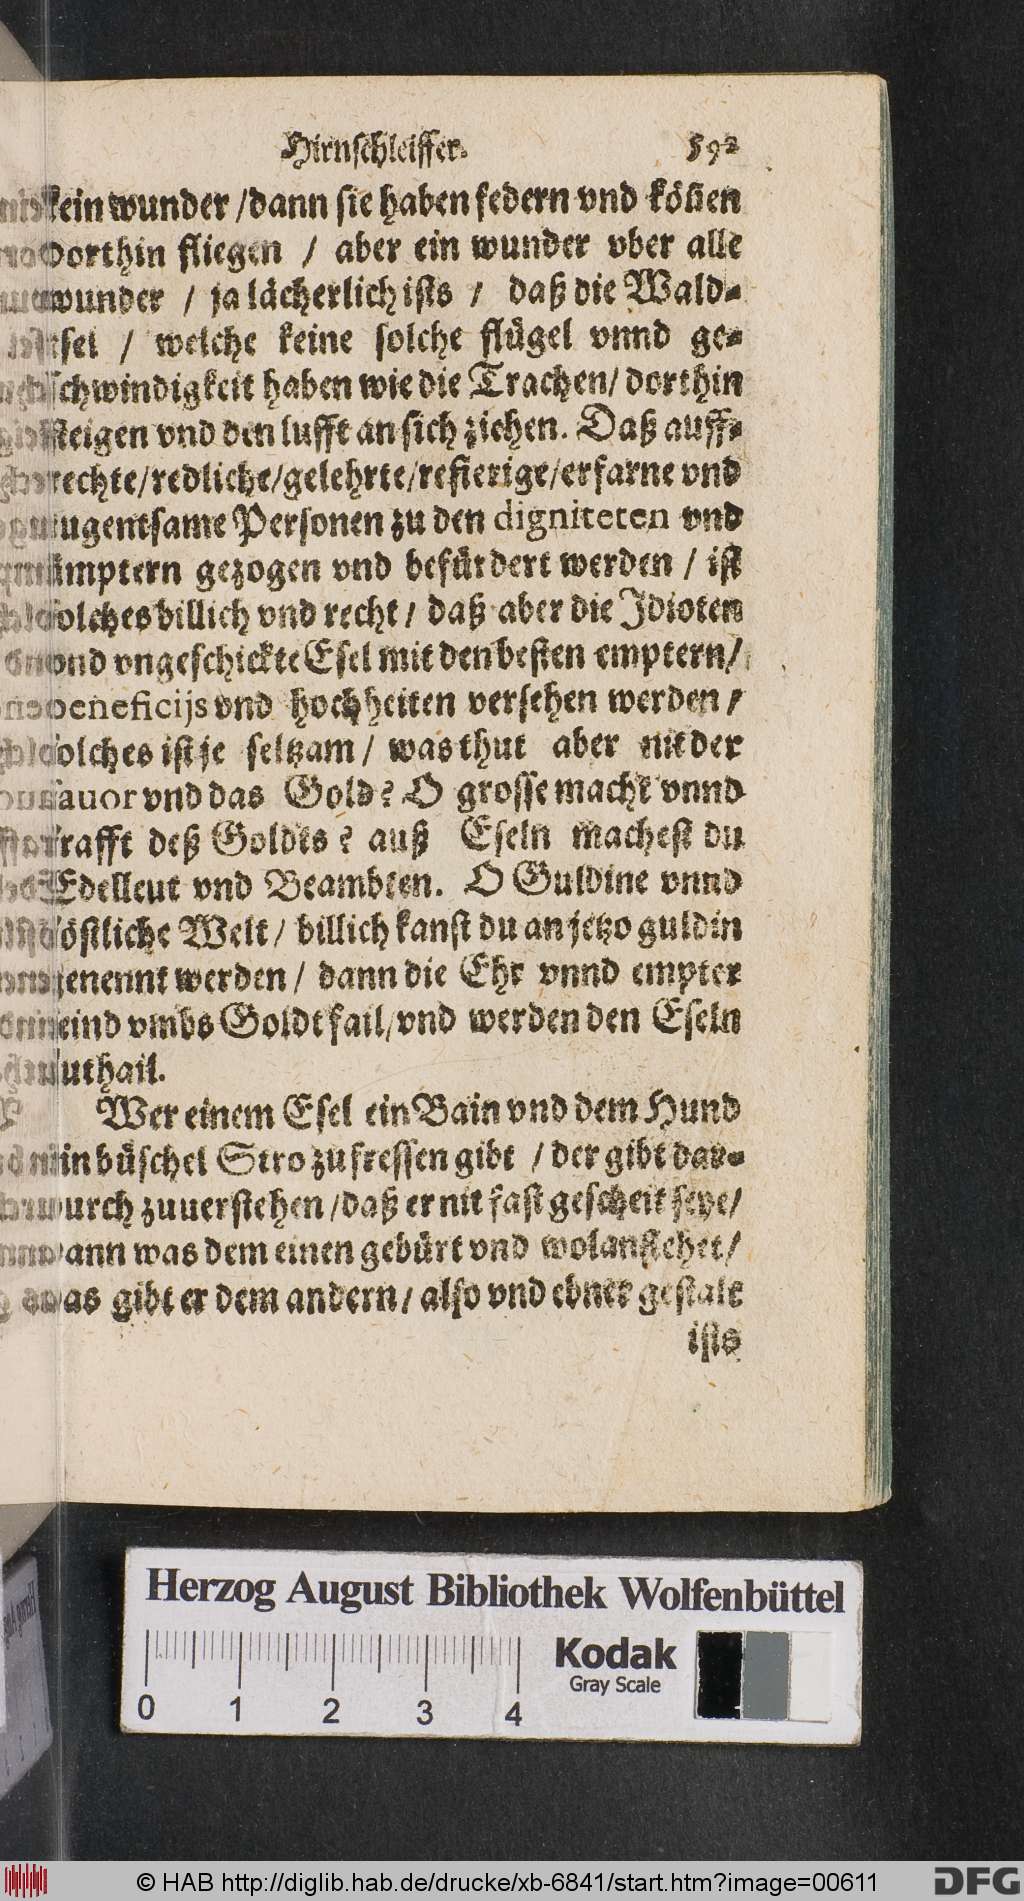 Hirnschleiffer. 592
kein wunder / dann sie haben federn vnd köñen
dorthin fliegen / aber ein wunder vber alle
wunder / ja lächerlich ists / daß die Wald-
esel / welche keine solche flügel vnnd ge-
schwindigkeit haben wie die Trachen / dorthin
steigen vnd den lufft an sich ziehen. Daß auff-
rechte / redliche / gelehrte / refierige / erfarne vnd
tugentsame Personen zu den digniteten vnd
ämptern gezogen vnd befürdert werden / ist
solches billich vnd recht / daß aber die Idioten
vnd vngeschickte Esel mit den besten emptern /
beneficijs vnd hochheiten versehen werden /
solches ist je seltzam / was thut aber nit der
fauor vnd das Gold? O grosse macht vnnd
krafft deß Goldts? auß Eseln machest du
Edelleut vnd Beambten. O Guldine vnnd
köstliche Welt / billich kanst du an jetzo guldin
genennt werden / dann die Ehr vnnd empter
seind vmbs Goldt fail / vnd werden den Eseln
zuthail.
Wer einem Esel ein Bain vnd dem Hund
ein büschel Stro zu fressen gibt / der gibt dar-
durch zuuerstehen / daß er nit fast gescheit seye /
dann was dem einen gebürt vnd wolanstehet /
das gibt er dem andern / also vnd ebner gestalt
ists
Herzog August Bibliothek Wolfenbüttel
Kodak
Gray Scale
0 1 2 3 4
© HAB http://diglib.hab.de/drucke/xb-6841/start.htm?image=00611
DFG